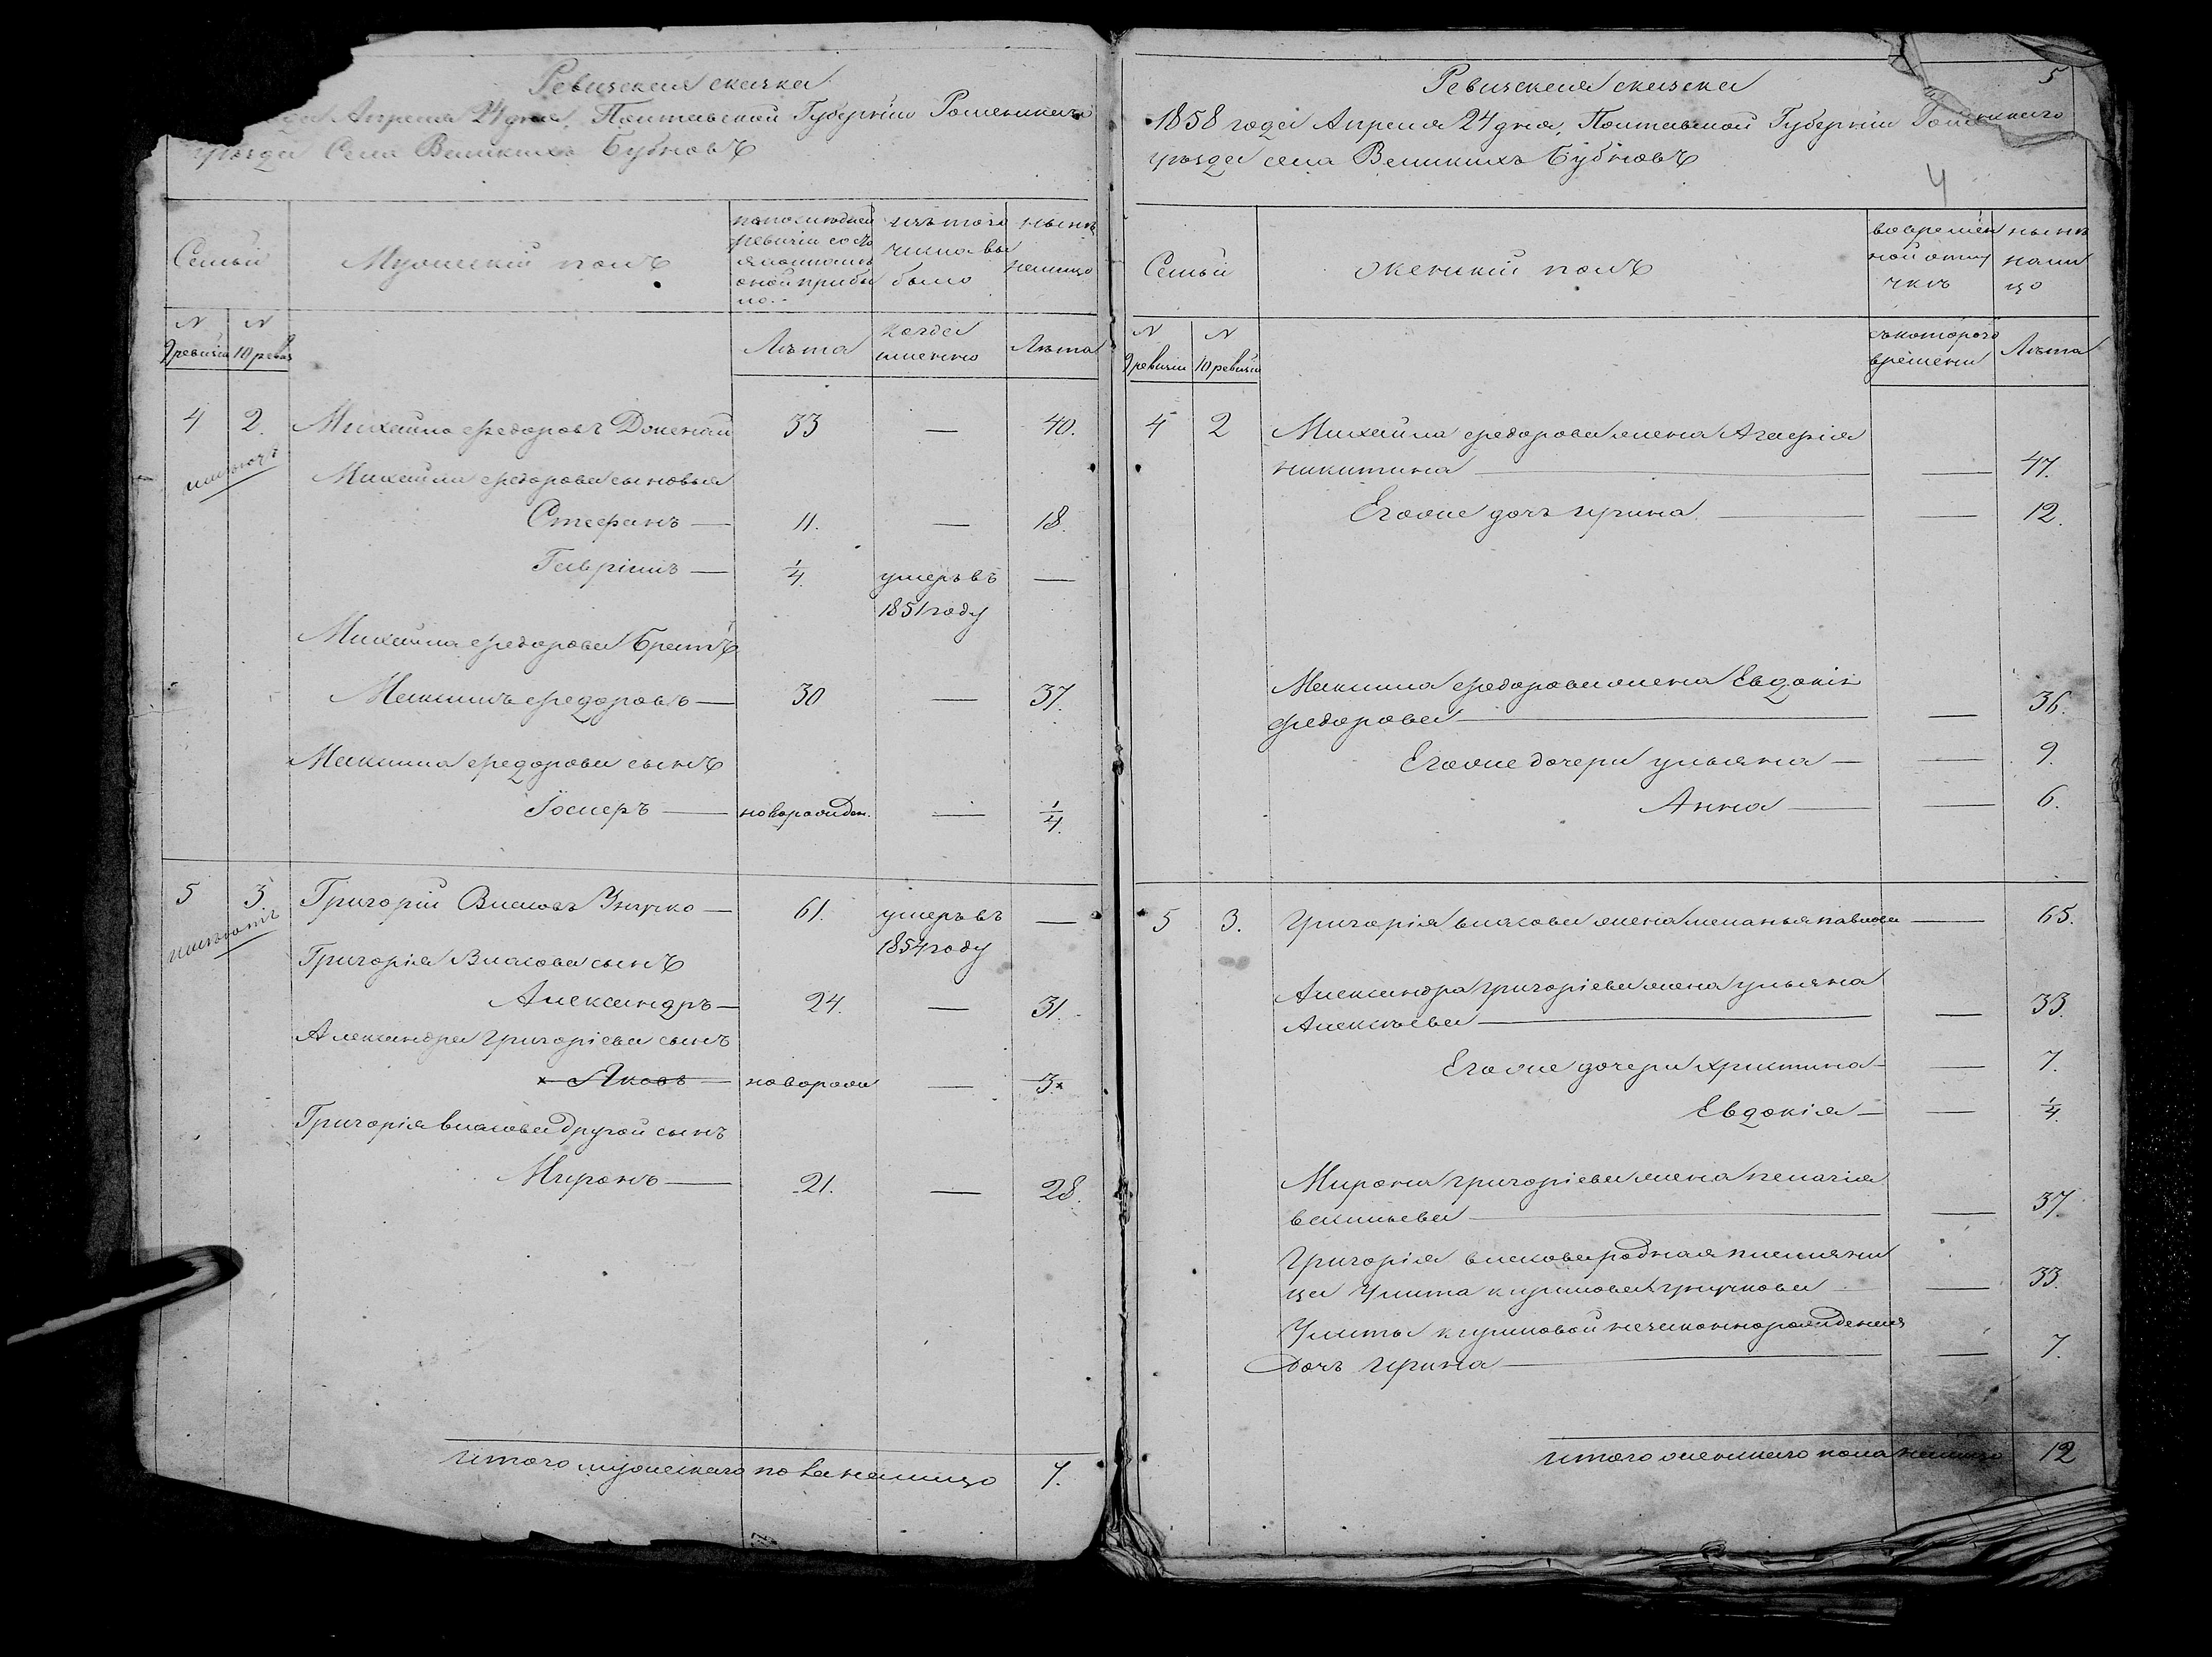 Ревизская сказка
Апреля 24 дня, Полтавской Губерніи Роменскаго
уѣзда Села Великихъ Бубновъ
Семьи
Мужескій полъ
по последней
ревизіи состо
яло и послѣ
оной прибы
ло.
изъ того
числа вы
было
нынѣ
налицо
N
9 ревизіи
N
10 ревиз
Лѣта
когда
именно
Лѣта
4 2. Михайло Федоровъ Доценко 33 — 40.
Михайла Федорова сыновья
Стефанъ — 11. — 18.
Гаврiилъ — 1/4. умеръ въ —
1851 году
Михайла Федорова Братъ
Максимъ Федоровъ — 30 — 37.
Максима Федорова сынъ
Іосифъ — новорожден. — 1/4.
5 3. Григорій Власовъ Унучко — 61. умеръ въ —
1854 году
Григорія Власова сынъ
Александръ — 24. — 31.
Александра Григоріева сынъ
x Яковъ — новорож — 3. x
Григорія Власова другой сынъ
Миронъ — 21. — 28.
итого мужескаго пола налицо 7.
5
Ревизская сказка
1858 года Апреля 24 дня, Полтавской Губерніи Роменскаго
уѣзда села Великихъ Бубновъ
4
Семьи
Женскій полъ
во времен
ной отлу
чкѣ
нынѣ
нали
цо
N
9 ревизіи
N
10 ревизіи
съ котораго
времени
Лѣта
4 2 Михайла Федорова жена Агафія
никитина — — 47.
Его же дочь Ирина — — 12.
Максима Федорова жена Евдокія
Федорова — — 36.
Его же дочери ульяна — — 9.
Анна — — 6.
5 3. Григорія власова жена меланья павлова — 65.
Александра григоріева жена ульяна
Алексѣева — — 33.
Его же дочери христина — — 7.
Евдокія — — 1/4.
Мирона григоріева жена пелагія
васильева — — 37
Григорія власова родная племянни
ца Улита кирилова унучкова — 33.
Улиты кириловой незаконнорожденная
Дочь Ирина — — 7.
итого женскаго пола налицо 12